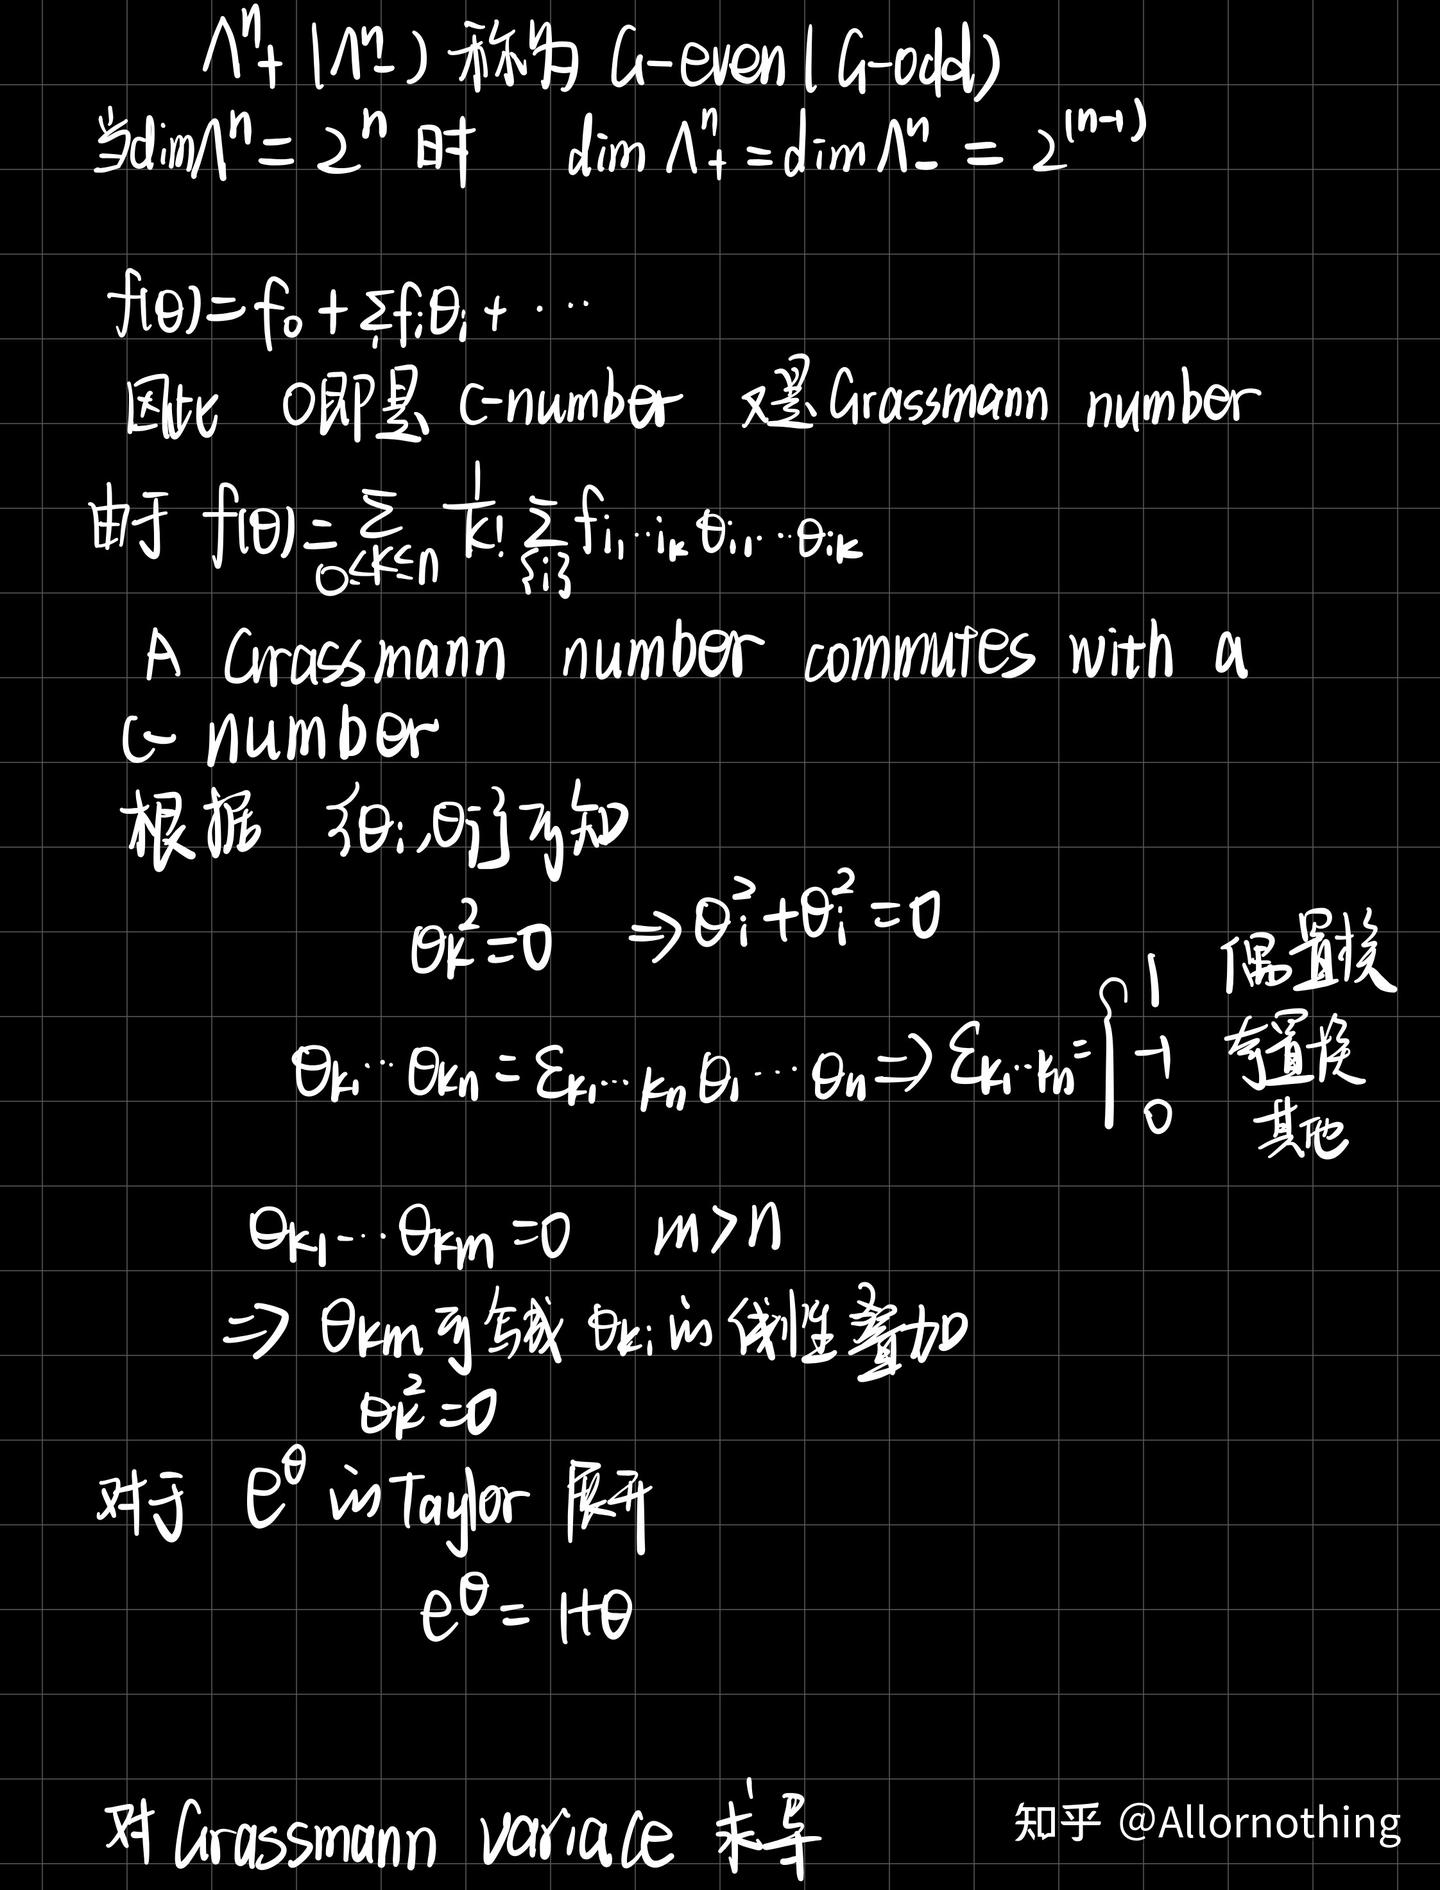 Λⁿ₊ (Λⁿ₋) 称为 G-even (G-odd)
当dimΛⁿ = 2ⁿ 时 dim Λⁿ₊ = dim Λⁿ₋ = 2⁽ⁿ⁻¹⁾
f(θ) = f₀ + Σᵢ fᵢθᵢ + ···
因此 0即是 C-number 又是 Grassmann number
由于 f(θ) = Σ_{0≤k≤n} 1/k! Σ_{{i}} f_{i₁···i_k} θ_{i₁}···θ_{i_k}
A Grassmann number commutes with a
C-number
根据 {θᵢ,θⱼ}可知
θ_k² = 0 ⇒ θᵢ² + θᵢ² = 0
θ_{k₁}···θ_{kₙ} = ε_{k₁···kₙ} θ₁···θₙ ⇒ ε_{k₁···kₙ} = { 1 偶置换
-1 奇置换
0 其他
θ_{k₁}···θ_{k_m} = 0 m>n
⇒ θ_{k_m} 可写成 θ_{kᵢ} 的线性叠加
θ_k² = 0
对于 e^θ 的Taylor 展开
e^θ = 1+θ
对 Grassmann variace 求导
知乎 @Allornothing